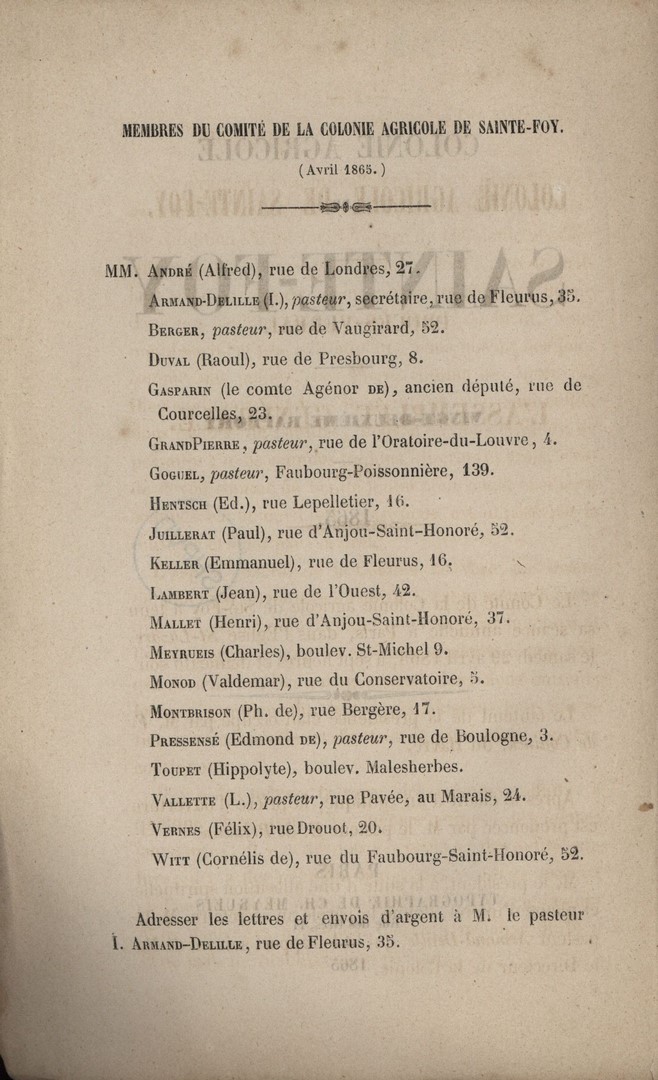 MEMBRES DU COMITÉ DE LA COLONIE AGRICOLE DE SAINTE-FOY.
(Avril 1865.)
MM. ANDRÉ (Alfred), rue de Londres, 27.
ARMAND-DELILLE (I.), pasteur, secrétaire, rue de Fleurus, 35.
BERGER, pasteur, rue de Vaugirard, 52.
DUVAL (Raoul), rue de Presbourg, 8.
GASPARIN (le comte Agénor DE), ancien député, rue de
Courcelles, 23.
GRANDPIERRE, pasteur, rue de l'Oratoire-du-Louvre, 4.
GOGUEL, pasteur, Faubourg-Poissonnière, 139.
HENTSCH (Ed.), rue Lepelletier, 16.
JUILLERAT (Paul), rue d'Anjou-Saint-Honoré, 52.
KELLER (Emmanuel), rue de Fleurus, 16.
LAMBERT (Jean), rue de l'Ouest, 42.
MALLET (Henri), rue d'Anjou-Saint-Honoré, 37.
MEYRUEIS (Charles), boulev. St-Michel 9.
MONOD (Valdemar), rue du Conservatoire, 5.
MONTBRISON (Ph. de), rue Bergère, 17.
PRESSENSÉ (Edmond DE), pasteur, rue de Boulogne, 3.
TOUPET (Hippolyte), boulev. Malesherbes.
VALLETTE (L.), pasteur, rue Pavée, au Marais, 24.
VERNES (Félix), rue Drouot, 20.
WITT (Cornélis de), rue du Faubourg-Saint-Honoré, 52.
Adresser les lettres et envois d'argent à M. le pasteur
I. ARMAND-DELILLE, rue de Fleurus, 35.